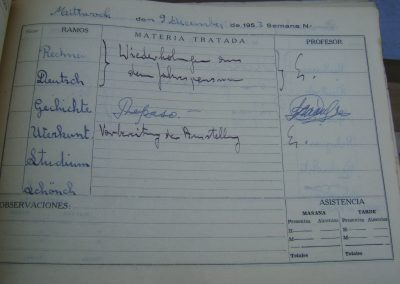 Mittwoch den 9 Dezember de 1953 Semana N.
RAMOS MATERIA TRATADA PROFESOR
Rechnen Wiederholungen aus
Deutsch dem Jahrespensum E.
Geschichte Repaso.—
Werkunt. Vorbereitung der Ausstellung E.
Studium
Schönsch
OBSERVACIONES: ASISTENCIA
MAÑANA TARDE
Presentes Ausentes Presentes Ausentes
S— S—
M— M—
Totales Totales